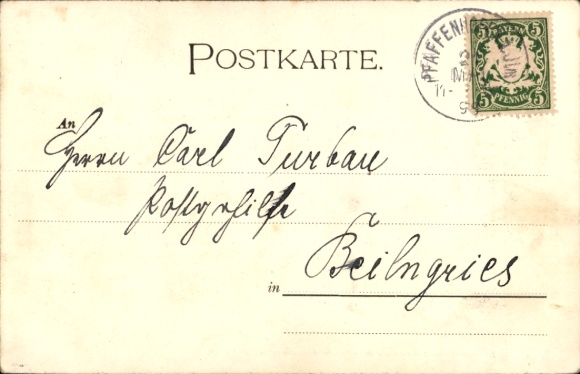 POSTKARTE.
BAYERN
5 5
5 PFENNIG 5
An
Herrn Carl Turban
Postgehilfe
in Beilngries